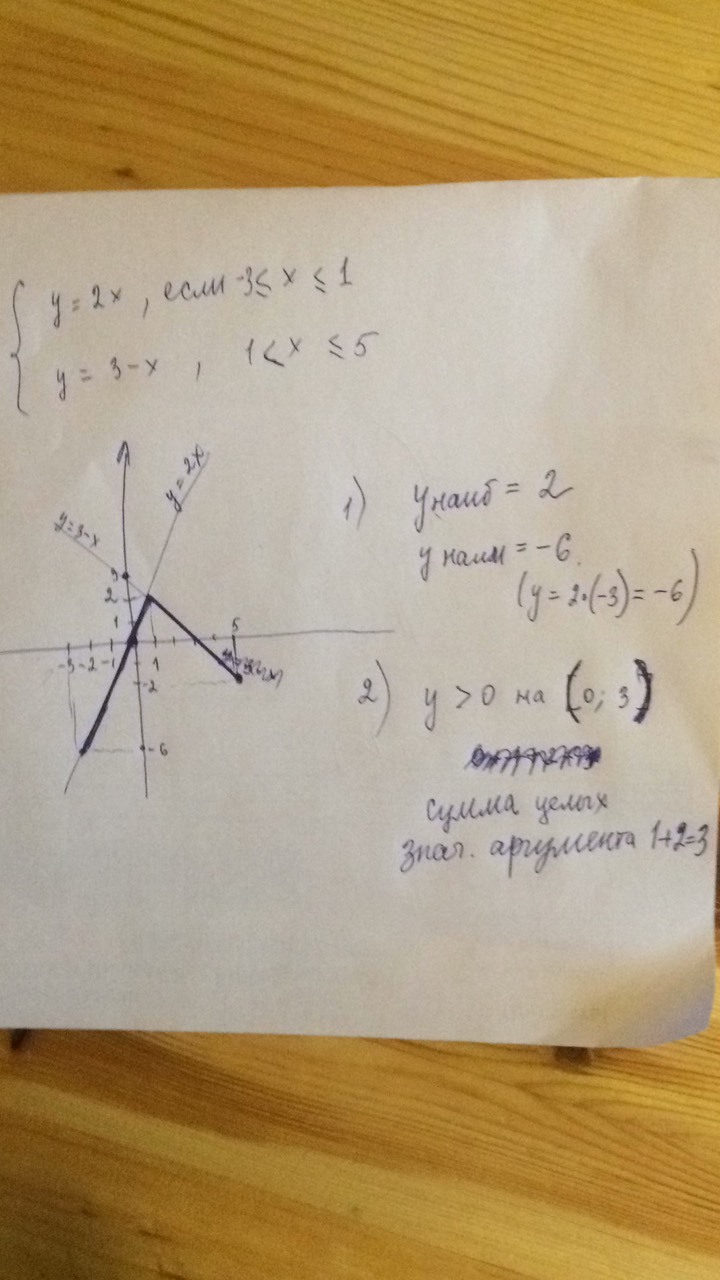 y = 2x , если -3 ≤ x ≤ 1
y = 3-x , 1 < x ≤ 5
y = 2x
y=3-x
3
2
1
5
-3 -2 -1
1
-2
-6
1) y наиб = 2
y наим = -6.
(y = 2·(-3) = -6)
2) y > 0 на (0; 3)
сумма целых
знач. аргумента 1+2=3